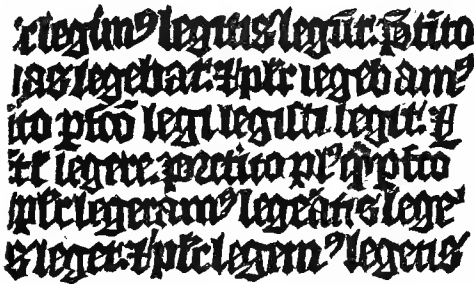 r legimꝰ legitis legũt. p̃tito
bas legebat. ⁊ pl̃r legebamꝰ
ito pfcõ legi legisti legit. ⁊
legere. preterito plꝰq̃pfcto
pl̃r legeramꝰ legeãtis lege
s leget. ⁊ pl̃r legemꝰ legetis